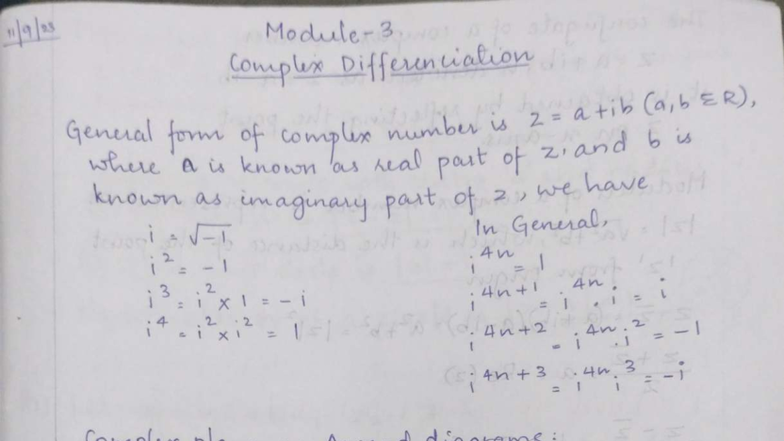 11/9/23
Module-3
Complex Differenciation
General form of complex number is z = a+ib (a,b ∈ R),
where a is known as real part of z, and b is
known as imaginary part of z, we have
i = √-1
i² = -1
i³ = i² × 1 = -i
i⁴ = i² × i² = 1
In General,
i⁴ⁿ = 1
i⁴ⁿ⁺¹ = i⁴ⁿ · i = i
i⁴ⁿ⁺² = i⁴ⁿ · i² = -1
i⁴ⁿ⁺³ = i⁴ⁿ · i³ = -i